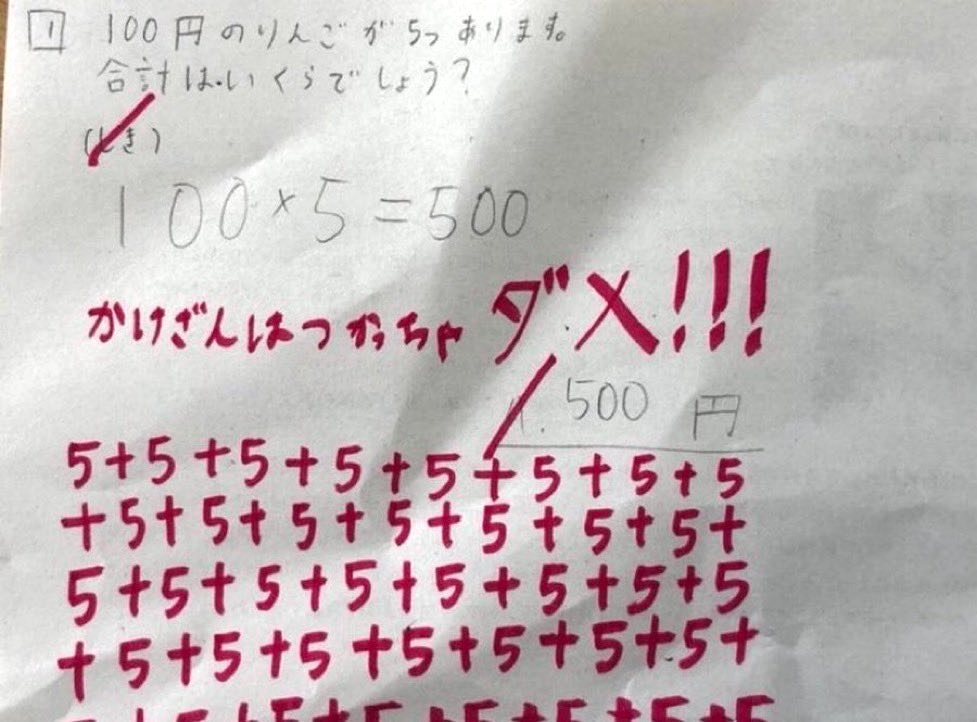 1 100円のりんごが5つあります。
合計はいくらでしょう?
(とき)
100×5=500
かけざんはつかっちゃダメ!!!
500 円
5+5+5+5+5+5+5+5
+5+5+5+5+5+5+5+
5+5+5+5+5+5+5+5
+5+5+5+5+5+5+5+